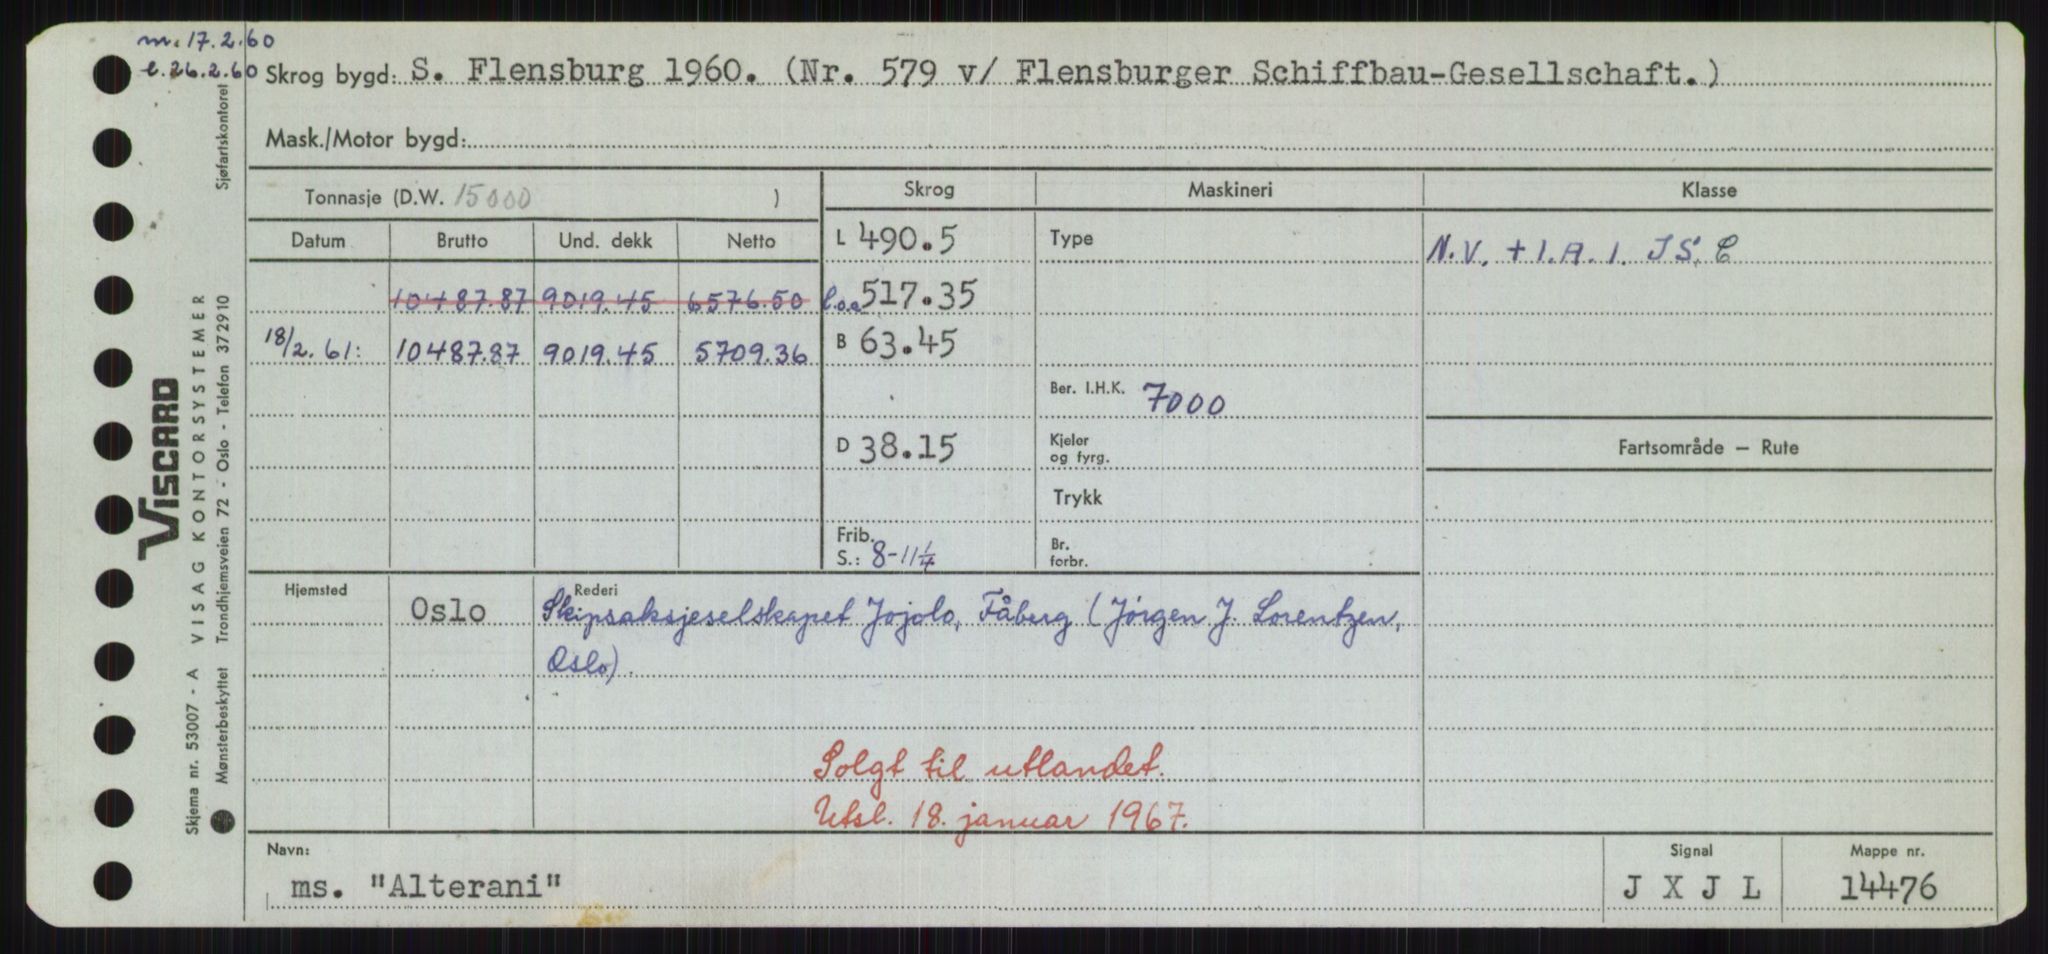 m. 17.2.60
l. 26.2.60 Skrog bygd: S. Flensburg 1960. (Nr. 579 v/ Flensburger Schiffbau-Gesellschaft.)
Mask./Motor bygd:
Tonnasje (D.W. 15000 )
Skrog Maskineri Klasse
Datum Brutto Und. dekk Netto
L 490.5 Type N.V. + 1.A.1. IS. C
10487.87 9019.45 6576.50 l.o.a 517.35
18/2. 61: 10487.87 9019.45 5709.36 B 63.45
Ber. I.H.K. 7000
D 38.15 Kjeler og fyrg. Fartsområde — Rute
Trykk
Frib. S.: 8-11 1/4 Br. forbr.
Hjemsted Rederi
Oslo Skipsaksjeselskapet Jojolo, Fåberg (Jörgen J. Lorentzen,
Oslo).
Solgt til utlandet.
Utsl. 18. januar 1967.
Navn: Signal Mappe nr.
ms. "Alterani" J X J L 14476
VISCARD
Skjema nr. 53007 - A VISAG KONTORSYSTEMER
Mønsterbeskyttet Trondhjemsveien 72 - Oslo - Telefon 372910 Sjøfartskontoret